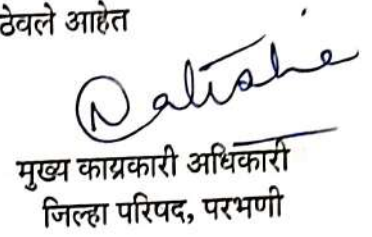 ठेवले आहेत
मुख्य कायकारी अधिकारी
जिल्हा परिषद, परभणी